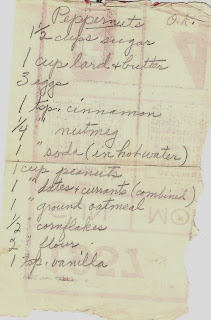 Peppernuts O.K.
1½ cups sugar
1 cup lard + butter
3 eggs
1 tsp. cinnamon
¼ " nutmeg
1 " soda (in hot water)
1 cup peanuts
1 " dates & currants (combined)
1 " ground oatmeal
½ " cornflakes
2 " flour.
1 tsp. vanilla